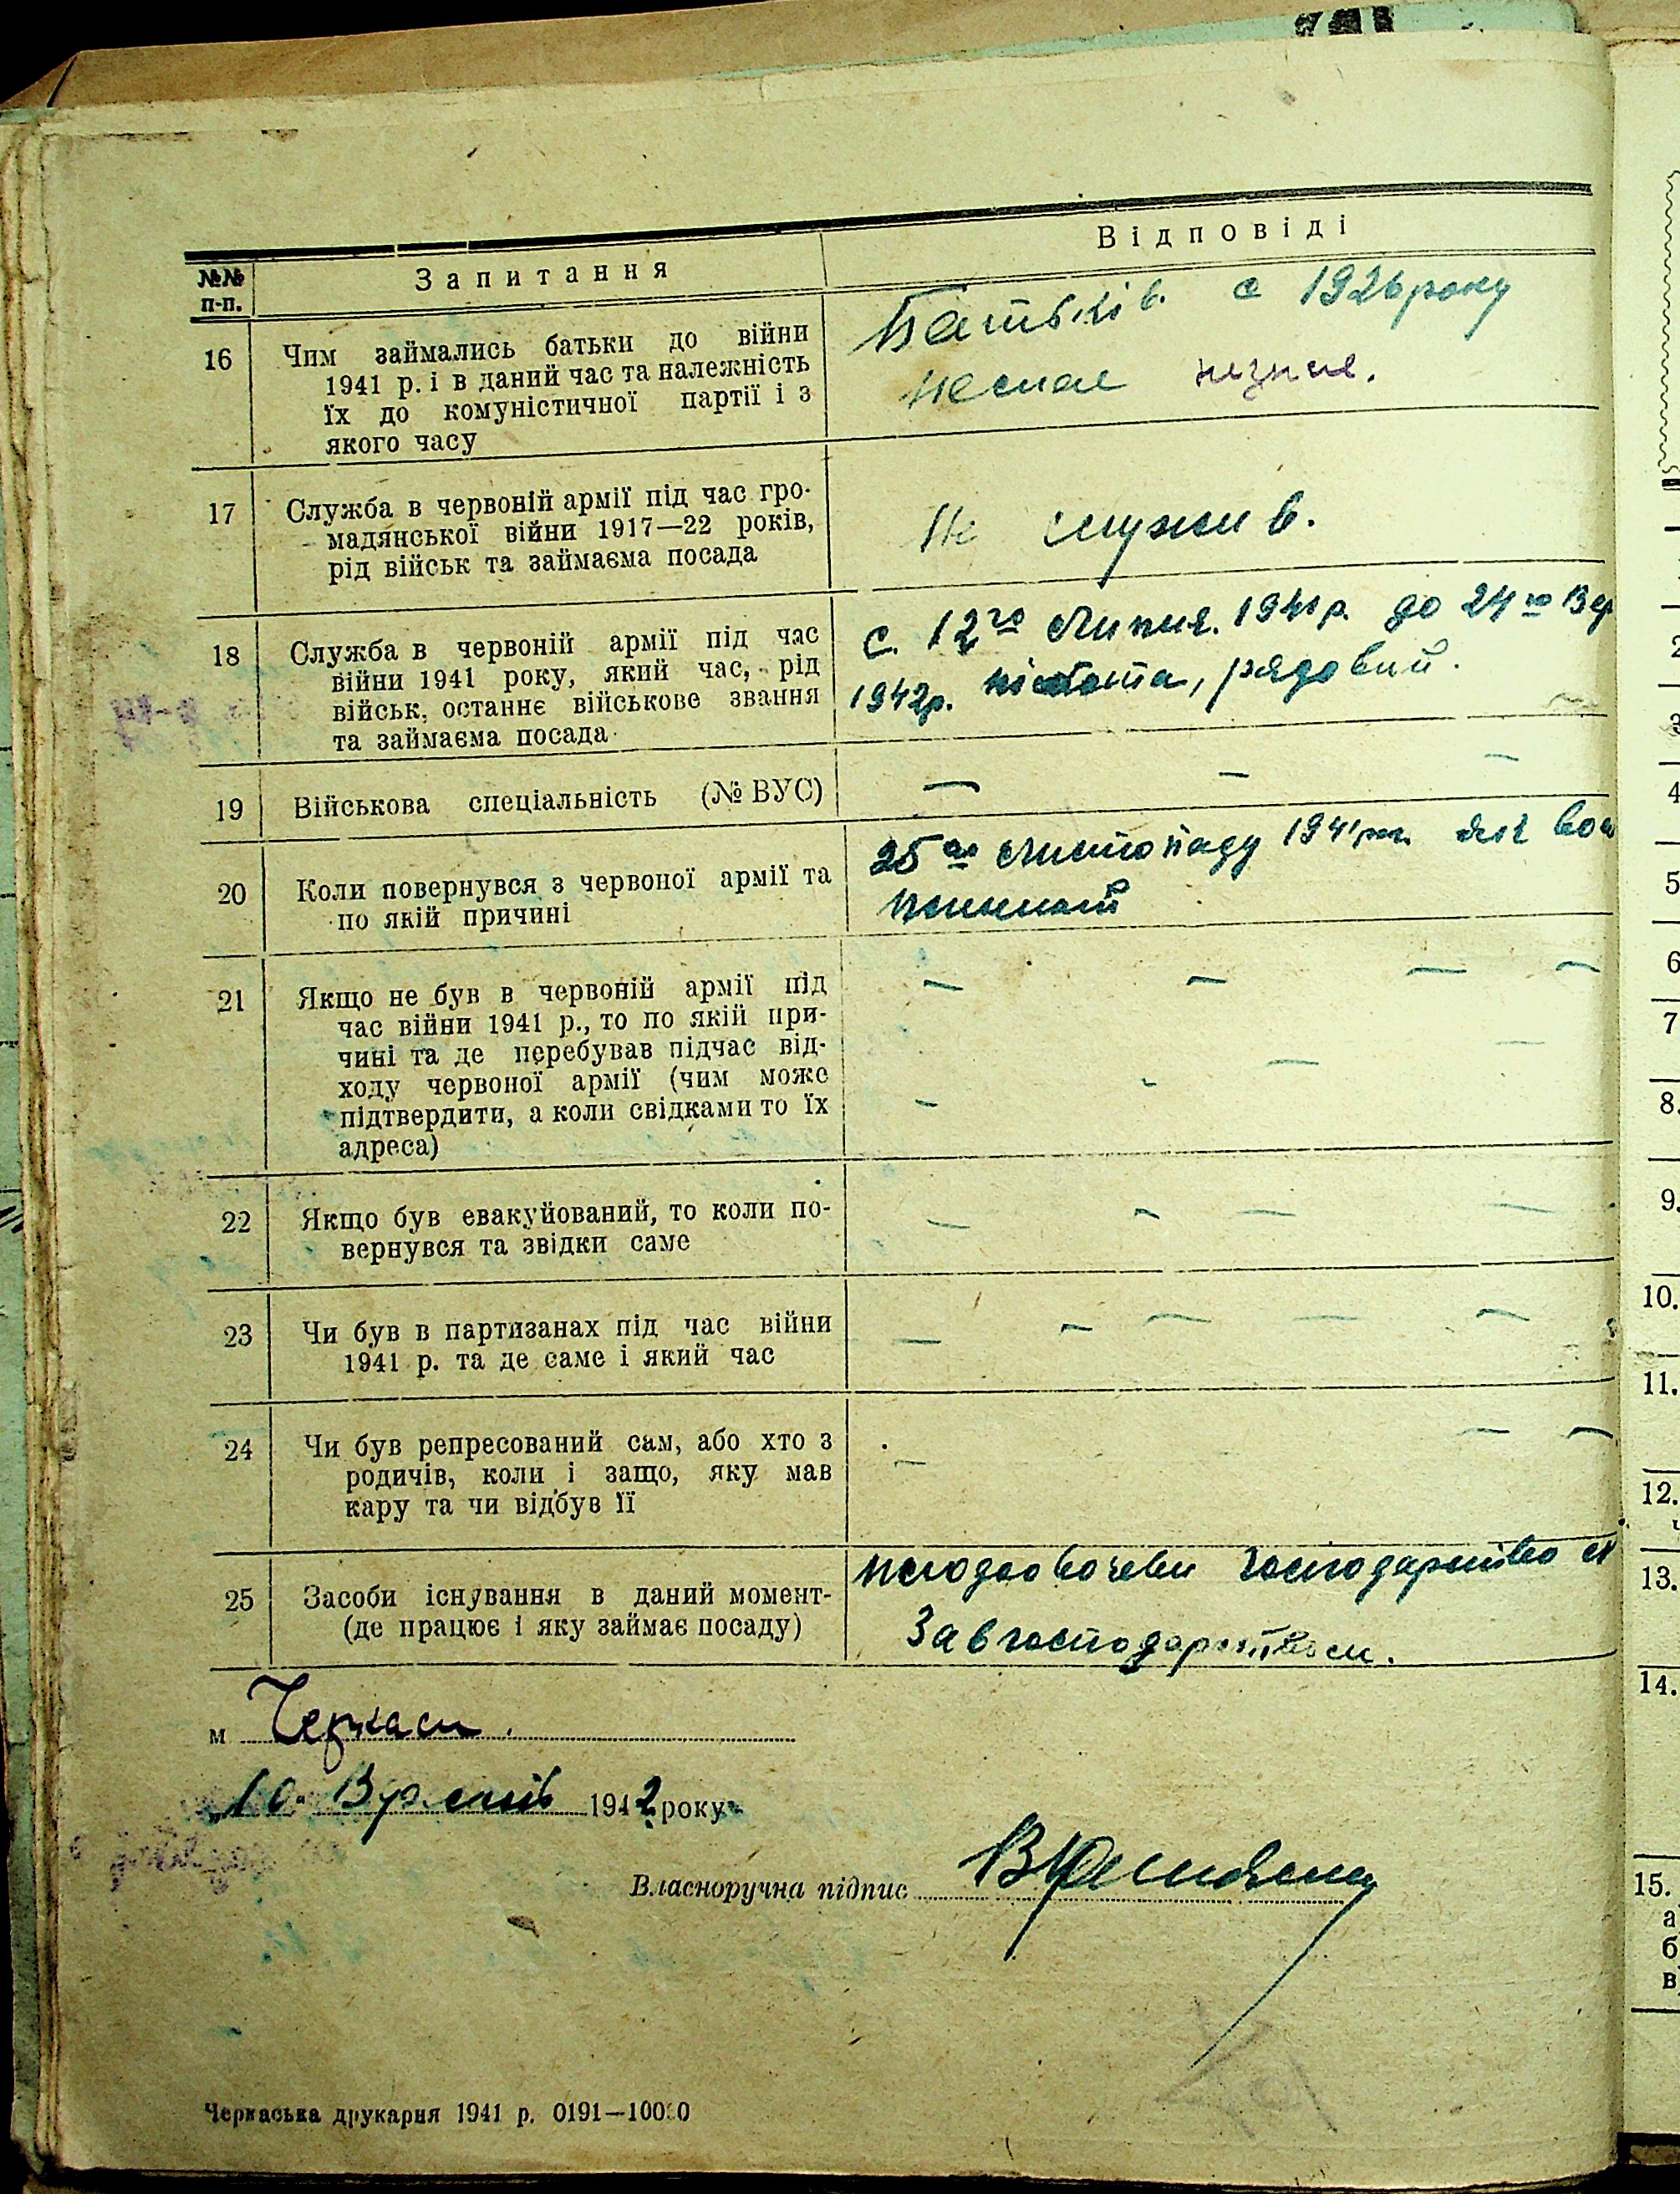 №№ п-п.
Запитання
Відповіді
16
Чим займались батьки до війни
1941 р. і в даний час та належність
їх до комуністичної партії і з
якого часу
Батьків. с 1926 року
немае
17
Служба в червоній армії під час гро-
мадянської війни 1917—22 років,
рід військ та займаєма посада
Не служив.
18
Служба в червоній армії під час
війни 1941 року, який час, рід
військ, останнє військове звання
та займаєма посада
с. 12го Липня. 1941 р. до 24го Вер
1942р. піхота, рядовий.
19
Військова спеціальність (№ ВУС)
— — —
20
Коли повернувся з червоної армії та
по якій причині
25го Листопаду 1941 р. як
21
Якщо не був в червоній армії під
час війни 1941 р., то по якій при-
чині та де перебував підчас від-
ходу червоної армії (чим може
підтвердити, а коли свідками то їх
адреса)
22
Якщо був евакуйований, то коли по-
вернувся та звідки саме
23
Чи був в партизанах під час війни
1941 р. та де саме і який час
24
Чи був репресований сам, або хто з
родичів, коли і защо, яку мав
кару та чи відбув її
25
Засоби існування в даний момент-
(де працює і яку займає посаду)
господарство
Завгосподарством.
м Черкаси.
„10" 1942 року
Власноручна підпис
Черкаська друкарня 1941 р. 0191—10000
2
3
4
5
6
7
8.
9.
10.
11.
12.
13.
14.
15.
а
б
в